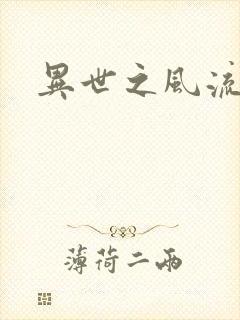 異世之風流
薄荷二兩